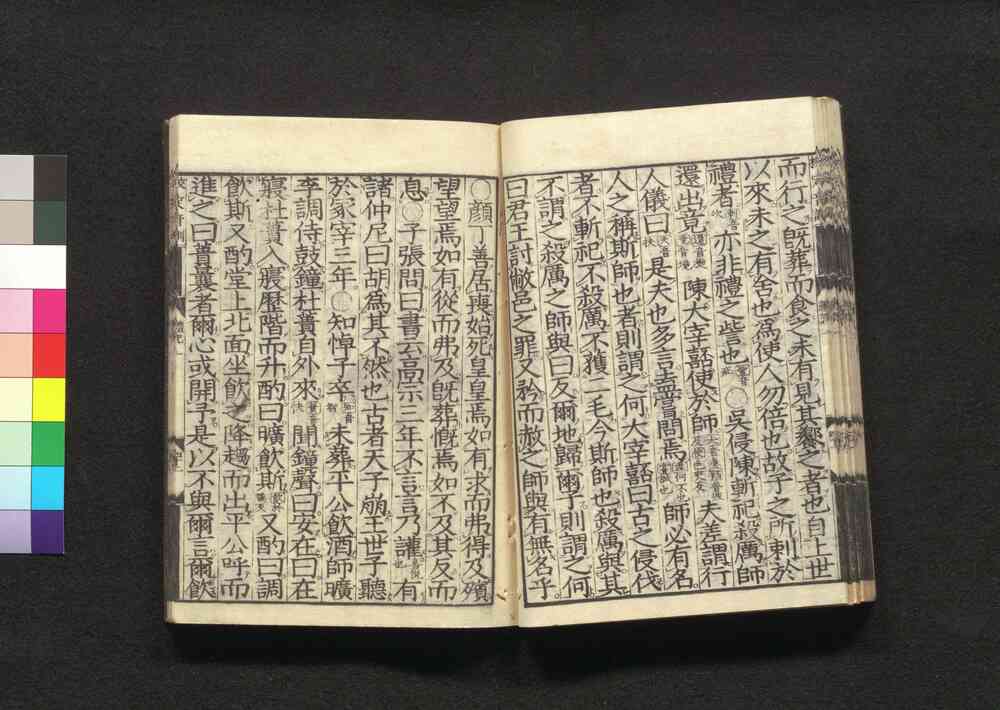 而行之既葬而食之未有見其饗之者也自上世
以來未之有舍也為使人勿倍也故子之所刺於
禮者亦非禮之訾也○吳侵陳斬祀殺厲師
還出竟陳大宰嚭使於師夫差謂行
人儀曰是夫也多言盍嘗問焉師必有名
人之稱斯師也者則謂之何大宰嚭曰古之侵伐
者不斬祀不殺厲不獲二毛今斯師也殺厲與其
不謂之殺厲之師與曰反爾地歸爾子則謂之何
曰君王討敝邑之罪又矜而赦之師與有無名乎
○顏丁善居喪始死皇皇焉如有求而弗得及殯
望望焉如有從而弗及既葬慨焉如不及其反而
息○子張問曰書云高宗三年不言言乃讙有
諸仲尼曰胡為其不然也古者天子崩王世子聽
於冢宰三年○知悼子卒未葬平公飲酒師曠
李調侍鼓鐘杜蕢自外來聞鐘聲曰安在曰在
寢杜蕢入寢歷階而升酌曰曠飲斯又酌曰調
飲斯又酌堂上北面坐飲之降趨而出平公呼而
進之曰蕢曩者爾心或開予是以不與爾言爾飲